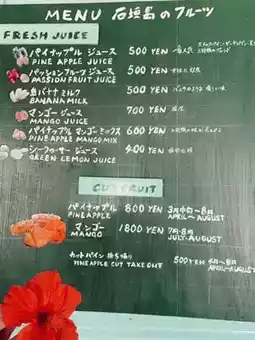 MENU 石垣島のフルーツ
FRESH JUICE
パイナップル ジュース 500 YEN 一番人気
PINE APPLE JUICE
パッションフルーツ ジュース 500 YEN
MASSION FRUIT JUICE
島バナナ ミルク 500 YEN
BANANA MILK
マンゴー ジュース 700 YEN
MANGO JUICE
パイナップル マンゴーミックス 600 YEN
PINEAPPLE MANGO MIX
シークヮーサー ジュース 400 YEN
GREEN LEMON JUICE
CUT FRUIT
パイナップル 800 YEN 3月中旬〜8月
PINEAPPLE APRIL〜AUGUST
マンゴー 1800 YEN 7月・8月
MANGO JULY・AUGUST
カットパイン 持ち帰り 500 YEN 4月〜8月
PINEAPPLE CUT TAKE OUT APRIL〜AUGUST